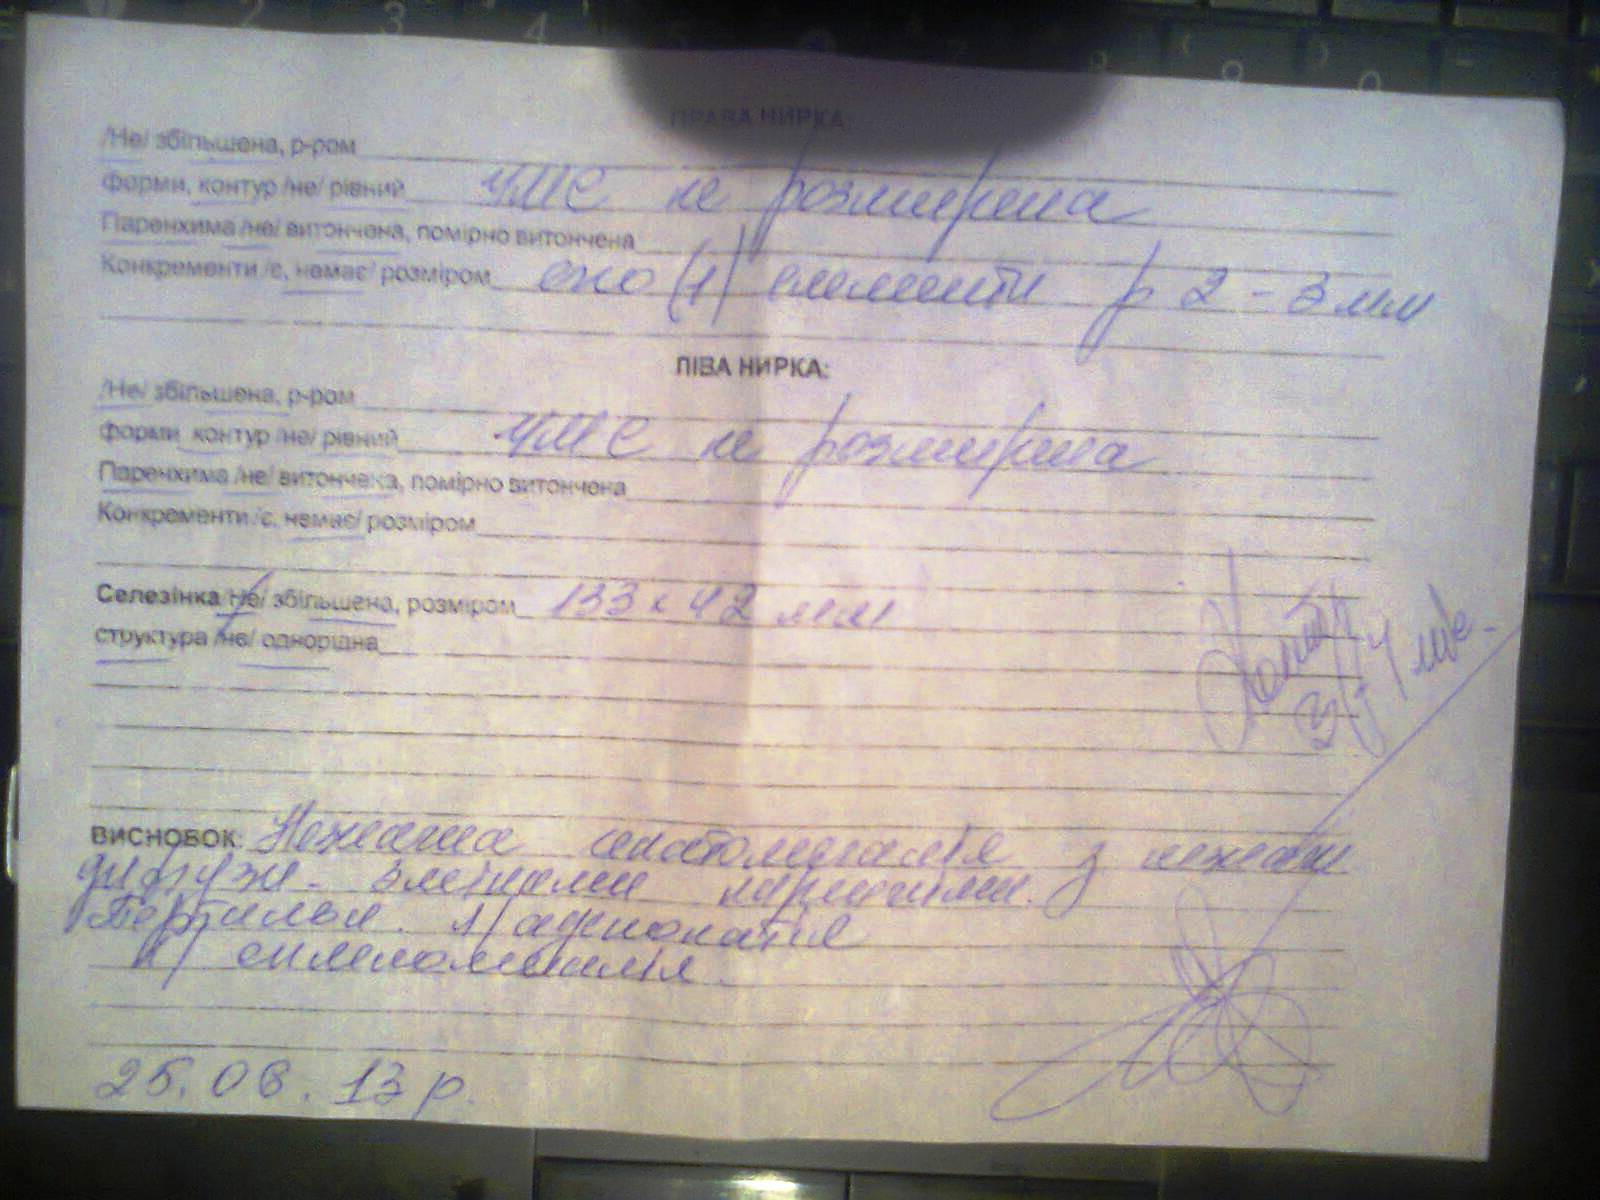 ПРАВА НИРКА
/Не/ збільшена, р-ром
форми, контур /не/ рівний ЧМС не розширена
Паренхима /не/ витончена, помірно витончена
Конкременти /є, немає/ розміром ехо (+) елементи р 2-3 мм
ЛІВА НИРКА:
/Не/ збільшена, р-ром
форми, контур /не/ рівний ЧМС не розширена
Паренхима /не/ витончена, помірно витончена
Конкременти /є, немає/ розміром
Селезінка /Не/ збільшена, розміром 133 х 42 мм
структура /не/ однорідна
Контр
з/ч
ВИСНОВОК: Незначна гепатомегалія з незначн
дифузн. змінами паренхими.
л/аденопатія
спленомегалія.
25.08.13 р.